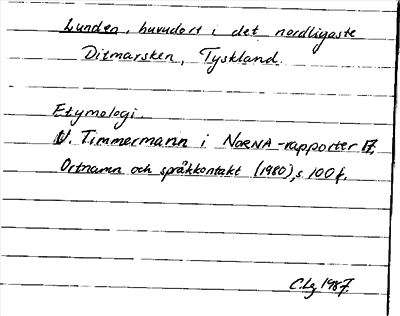 Lunden, huvudort i det nordligaste
Ditmarsken, Tyskland.
Etymologi.
U. Timmermann i NORNA-rapporter 17,
Ortnamn och språkkontakt (1980), s 100 f.
C.Lg 1987.